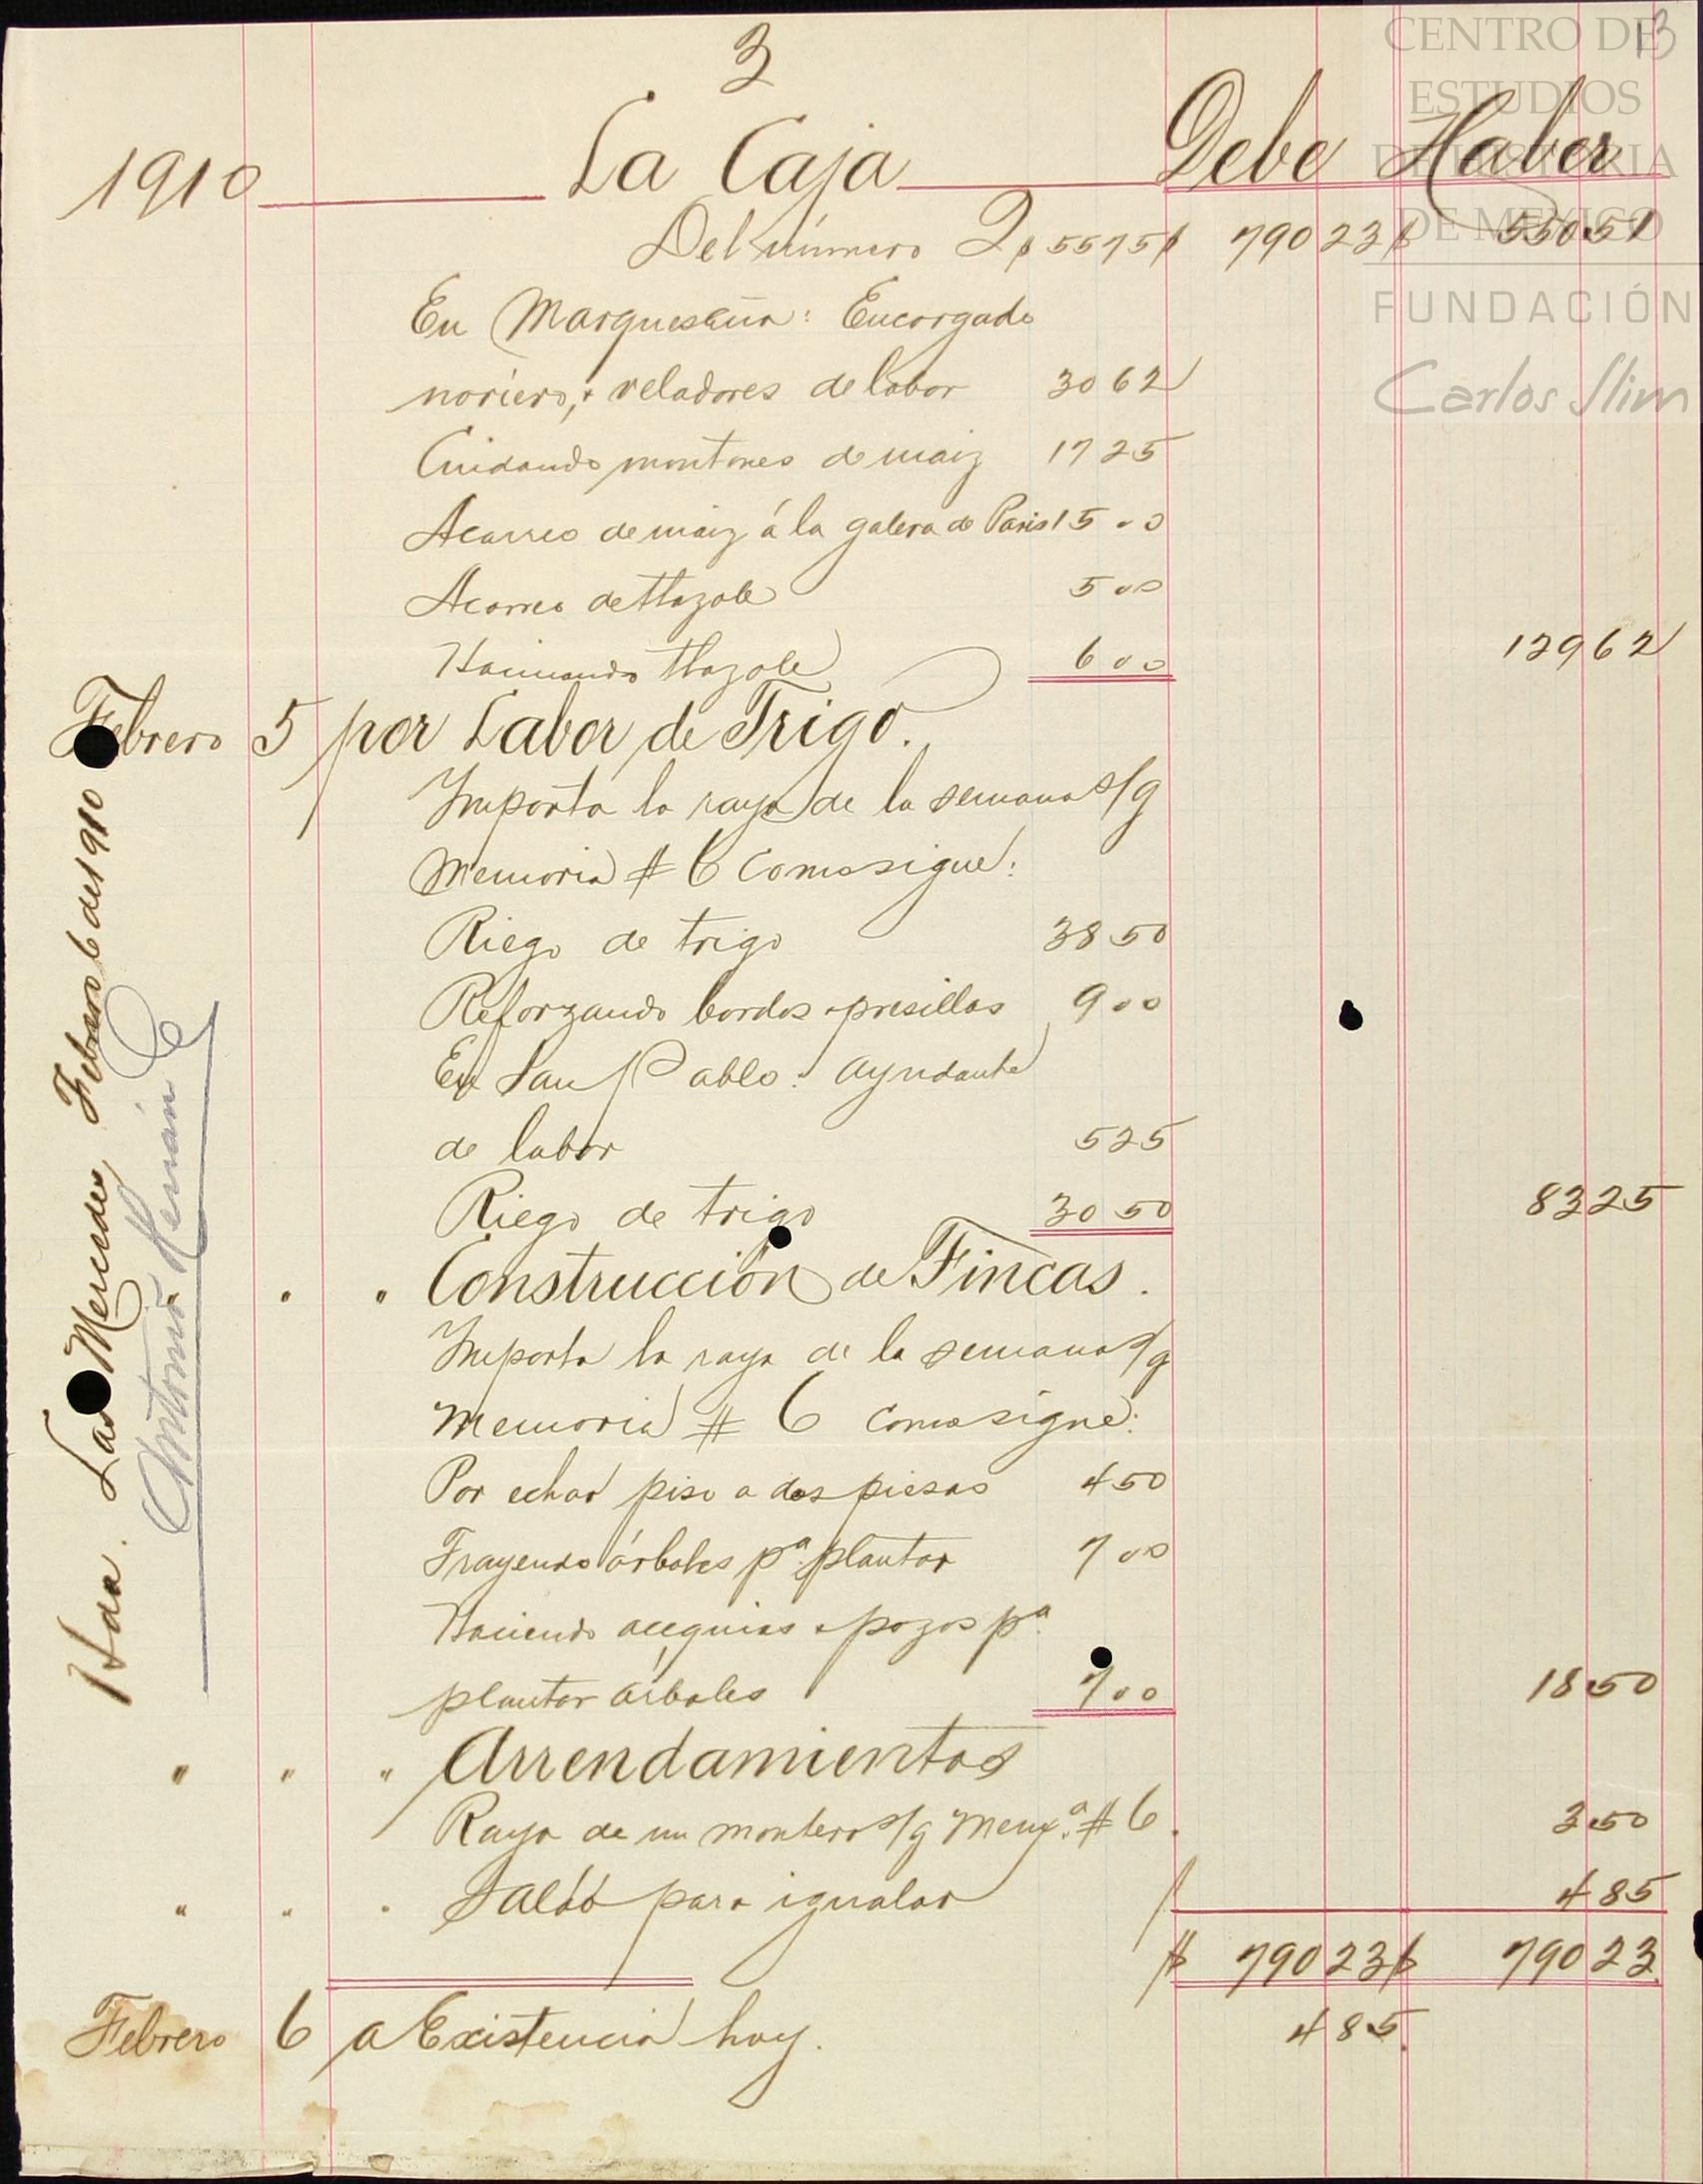 3
13
CENTRO DE
ESTUDIOS
DE HISTORIA
DE MEXICO
FUNDACIÓN
Carlos Slim
1910 La Caja Debe Haber
Del número 2 $ 55 75 $ 790 23 $ 550 51
En Marqueseña: Encargado
noriero, y veladores de labor 30 62
Cuidando montones de maiz 17 25
Acarreo de maiz á la galera de Paris 15 00
Acarreo de tlazole 5 00
Hacinando tlazole 6 00 129 62
Febrero 5 por Labor de Trigo.
Importa la raya de la semana s/g
Memoria # 6 como sigue:
Riego de trigo 38 50
Reforzando bordos y presillas 9 00
En San Pablo: ayudante
de labor 5 25
Riego de trigo 30 50 83 25
" " Construcción de Fincas.
Importa la raya de la semana s/g
Memoria # 6 como sigue:
Por echar piso a dos piesas 4 50
Trayendo árboles pª plantar 7 00
Haciendo acequias y pozos pª
plantar árboles 7 00 18 50
" " " Arrendamientos
Raya de un montero s/g Memª # 6. 3 50
" " " Saldo para igualar 4 85
$ 790 23 $ 790 23
Febrero 6 a Existencia hoy. 4 85
Hda. Las Mercedes, Febrero 6 de 1910
Antonio Remán